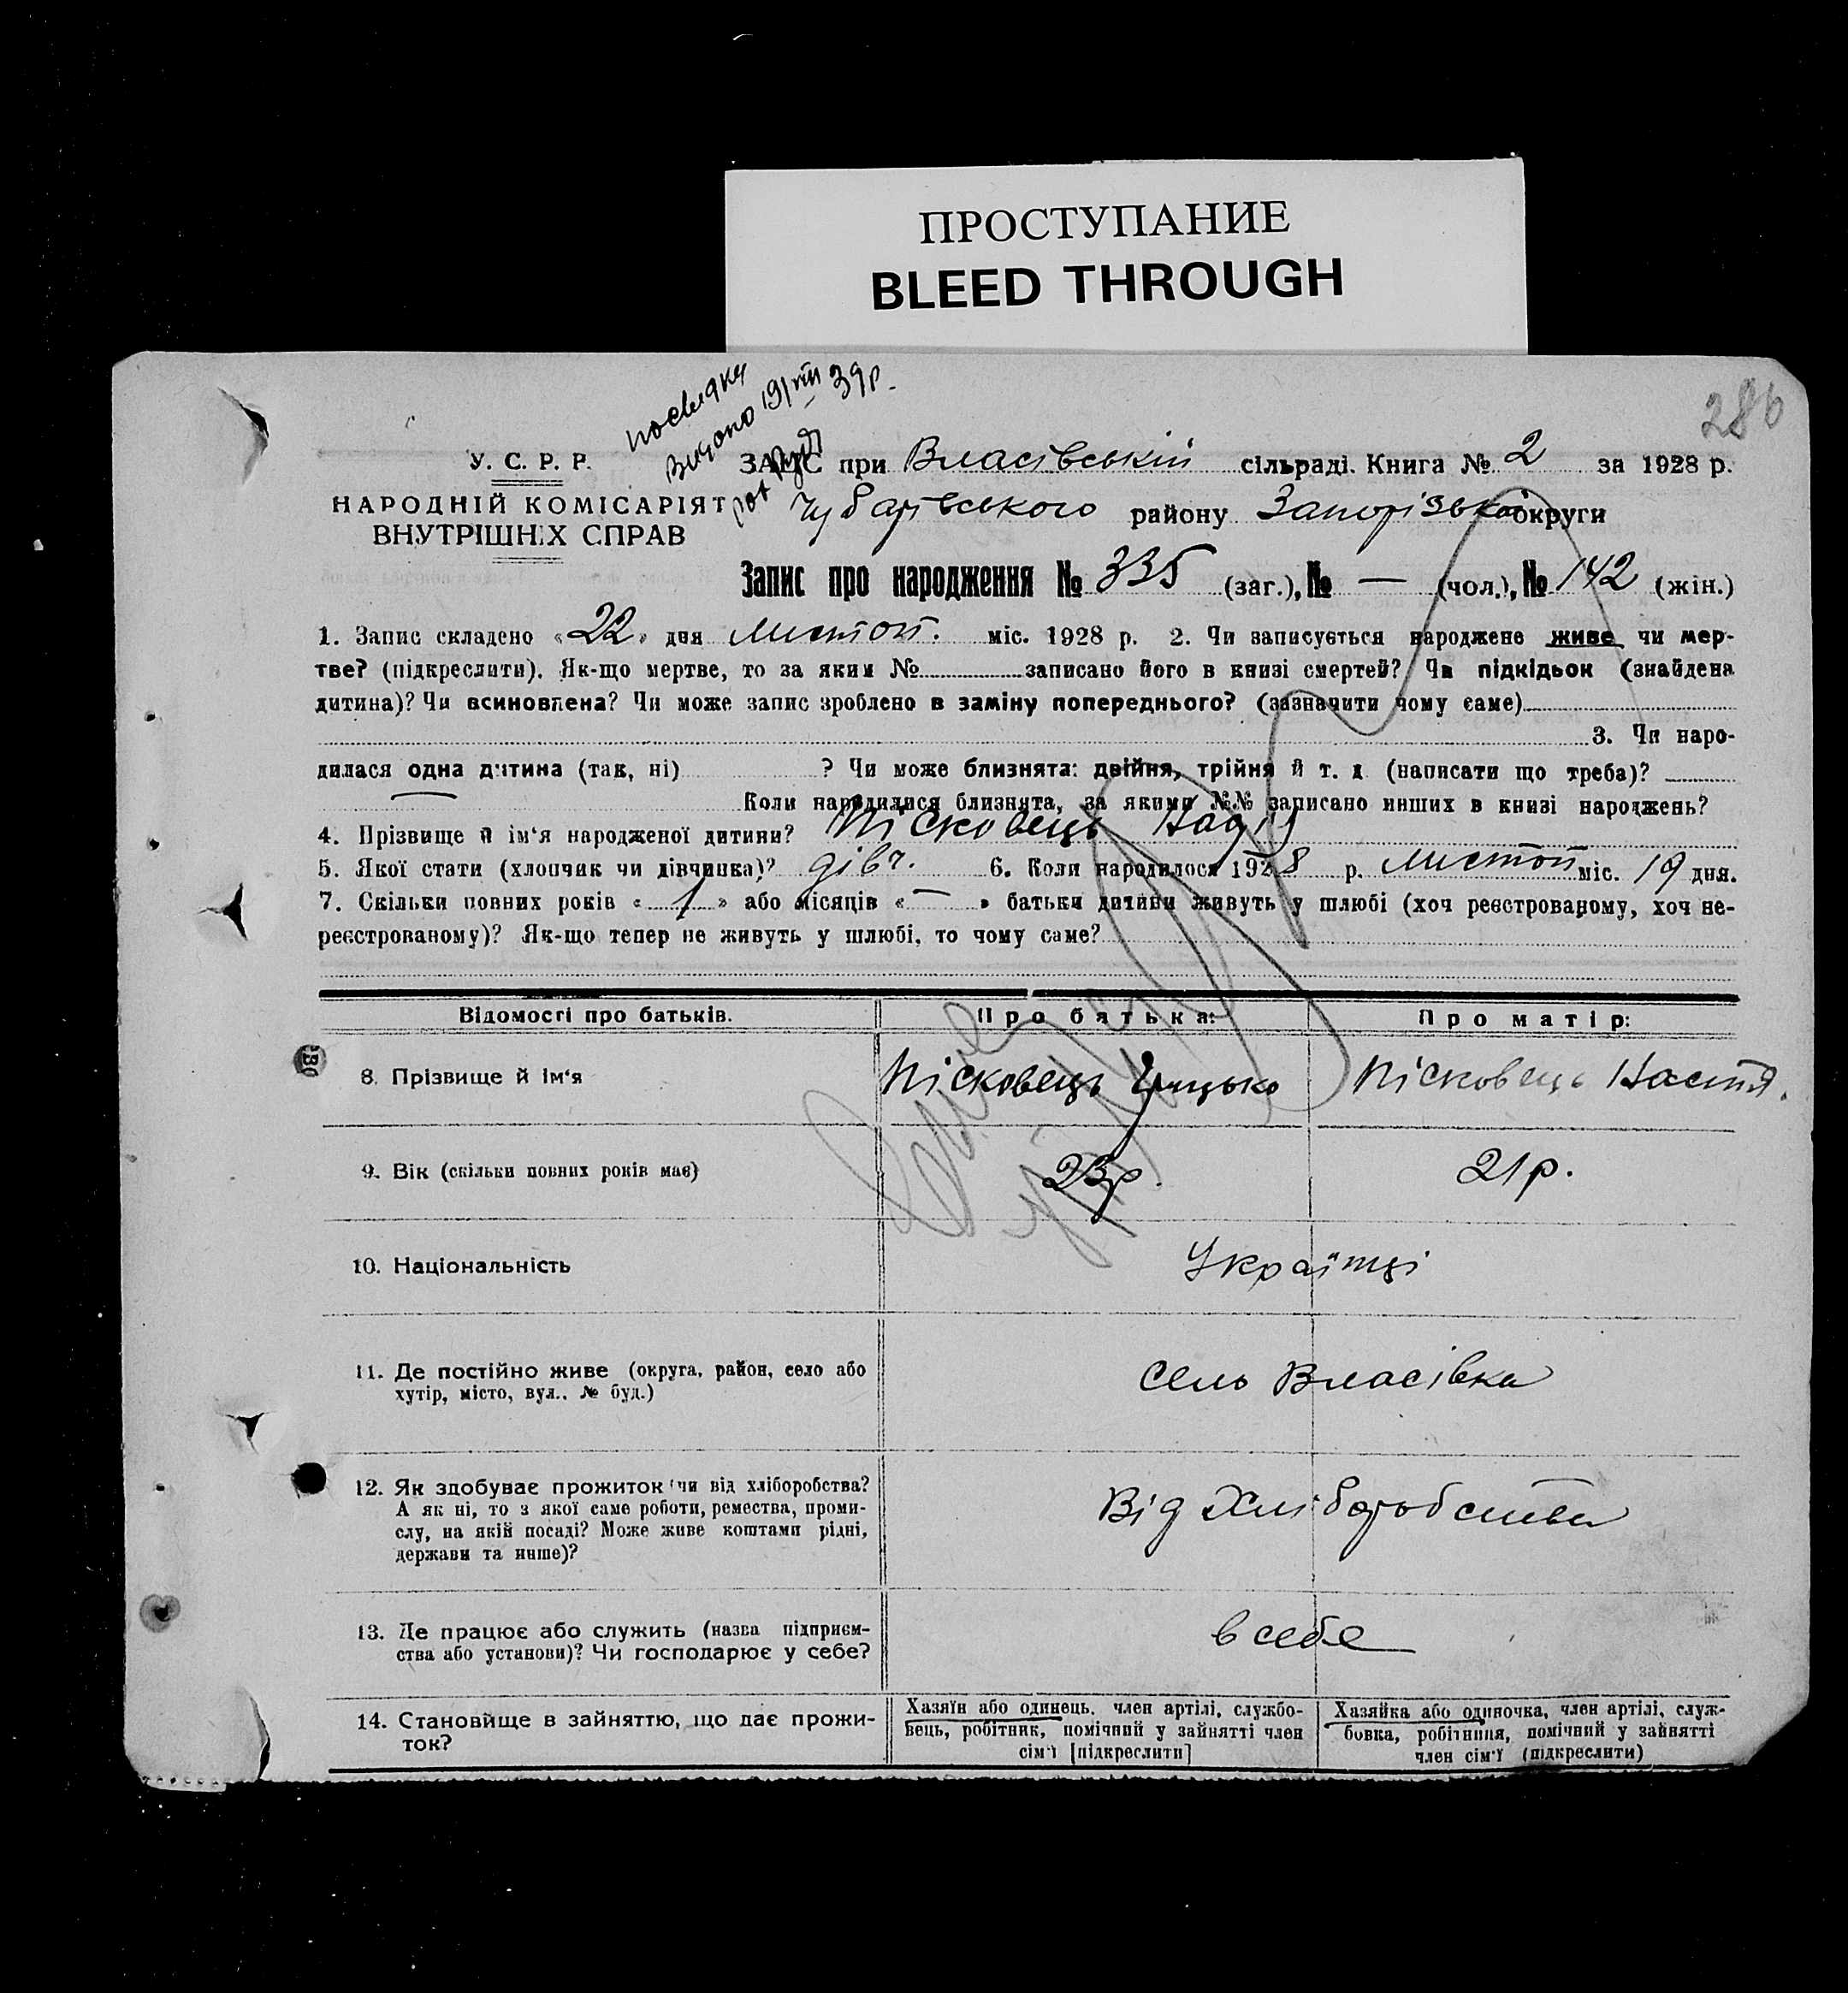 ПРОСТУПАНИЕ
BLEED THROUGH
286
посвідку
Видано 19/VIII 39р.
У. С. Р. Р.
НАРОДНІЙ КОМІСАРІЯТ
ВНУТРІШНІХ СПРАВ
ЗАЦС при Власівській сільраді. Книга № 2 за 1928 р.
Чубарівського району Запорізької округи
Запис про народження № 335 (заг.), № — (чол.), № 142 (жін.)
1. Запис складено «22» дня листоп. міс. 1928 р. 2. Чи записується народжене живе чи мер-
тве? (підкреслити). Як-що мертве, то за яким № записано його в книзі смертей? Чи підкідьок (знайдена
дитина)? Чи всиновлена? Чи може запис зроблено в заміну попереднього? (зазначити чому саме)
3. Чи наро-
дилася одна дитина (так, ні) ? Чи може близнята: двійня, трійня й т. д. (написати що треба)?
Коли народилися близнята, за якими №№ записано инших в книзі народжень?
4. Прізвище й ім'я народженої дитини? Пісковець Надія
5. Якої стати (хлопчик чи дівчинка)? дівч. 6. Коли народилося 1928 р. листоп міс. 19 дня.
7. Скільки повних років «1» або місяців «—» батьки дитини живуть у шлюбі (хоч реєстрованому, хоч не-
реєстрованому)? Як-що тепер не живуть у шлюбі, то чому саме?
Відомості про батьків. Про батька: Про матір:
8. Прізвище й ім'я Пісковець Грицько Пісковець Настя.
9. Вік (скільки повних років має) 23р. 21р.
10. Національність Українці
11. Де постійно живе (округа, район, село або
хутір, місто, вул., № буд.)
село Власівка
12. Як здобуває прожиток (чи від хліборобства?
А як ні, то з якої саме роботи, ремества, проми-
слу, на якій посаді? Може живе коштами рідні,
держави та инше)?
Від Хліборобства
13. Де працює або служить (назва підприєм-
ства або установи)? Чи господарює у себе?
в себе
14. Становище в зайняттю, що дає прожи-
ток?
Хазяїн або одинець, член артілі, службо-
вець, робітник, помічний у зайнятті член
сім'ї [підкреслити]
Хазяйка або одиночка, член артілі, служ-
бовка, робітниця, помічний у зайнятті
член сім'ї (підкреслити)